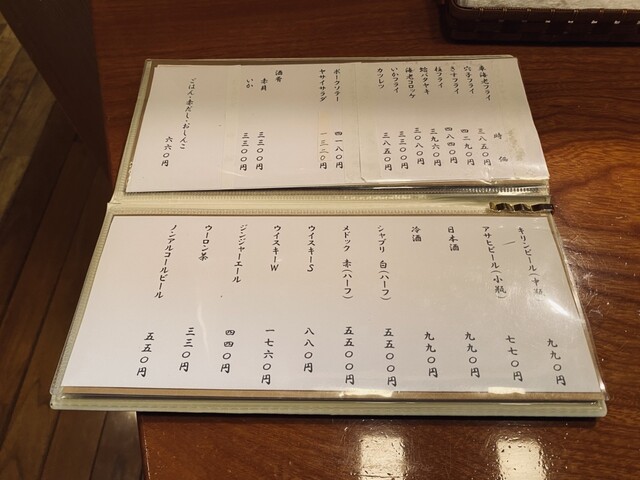 車海老フライ 時価
穴子フライ 三八五〇円
きすフライ 四二九〇円
柱フライ 四八四〇円
バタヤキ 三九六〇円
海老コロッケ 三〇八〇円
いかフライ 三三〇〇円
カツレツ 三八五〇円
ポークソテー 四一八〇円
ヤサイサラダ 一三二〇円
酒肴
赤貝 三三〇〇円
いか 三三〇〇円
ごはん・赤だし・おしんこ 六六〇円
キリンビール(中瓶) 九九〇円
アサヒビール(小瓶) 七七〇円
日本酒 九九〇円
冷酒 九九〇円
シャブリ 白(ハーフ) 五五〇〇円
メドック 赤(ハーフ) 五五〇〇円
ウイスキーS 八八〇円
ウイスキーW 一七六〇円
ジンジャーエール 四四〇円
ウーロン茶 三三〇円
ノンアルコールビール 五五〇円